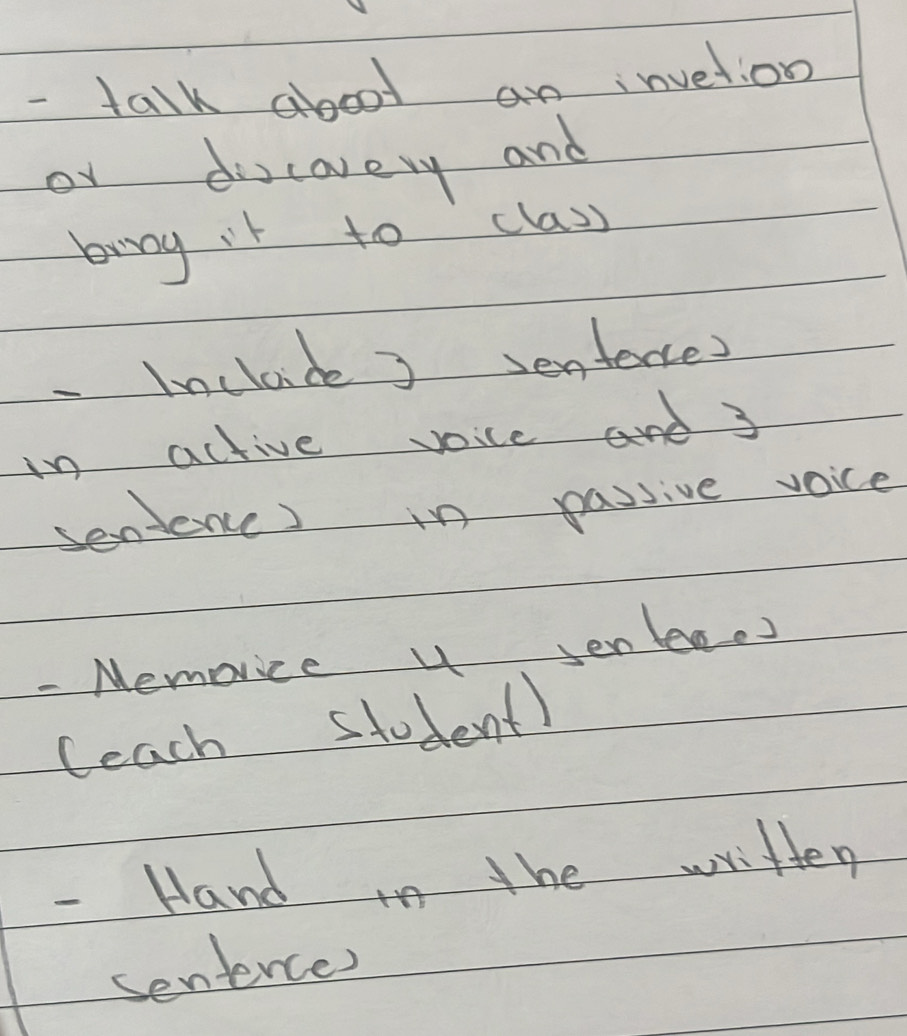 - talk about an invetion
or discovery and
bring it to class
- Include 3 sentences
in active voice and 3
sentences in passive voice
- Memorice 4 sentences
(each student)
- Hand in the written
sentences